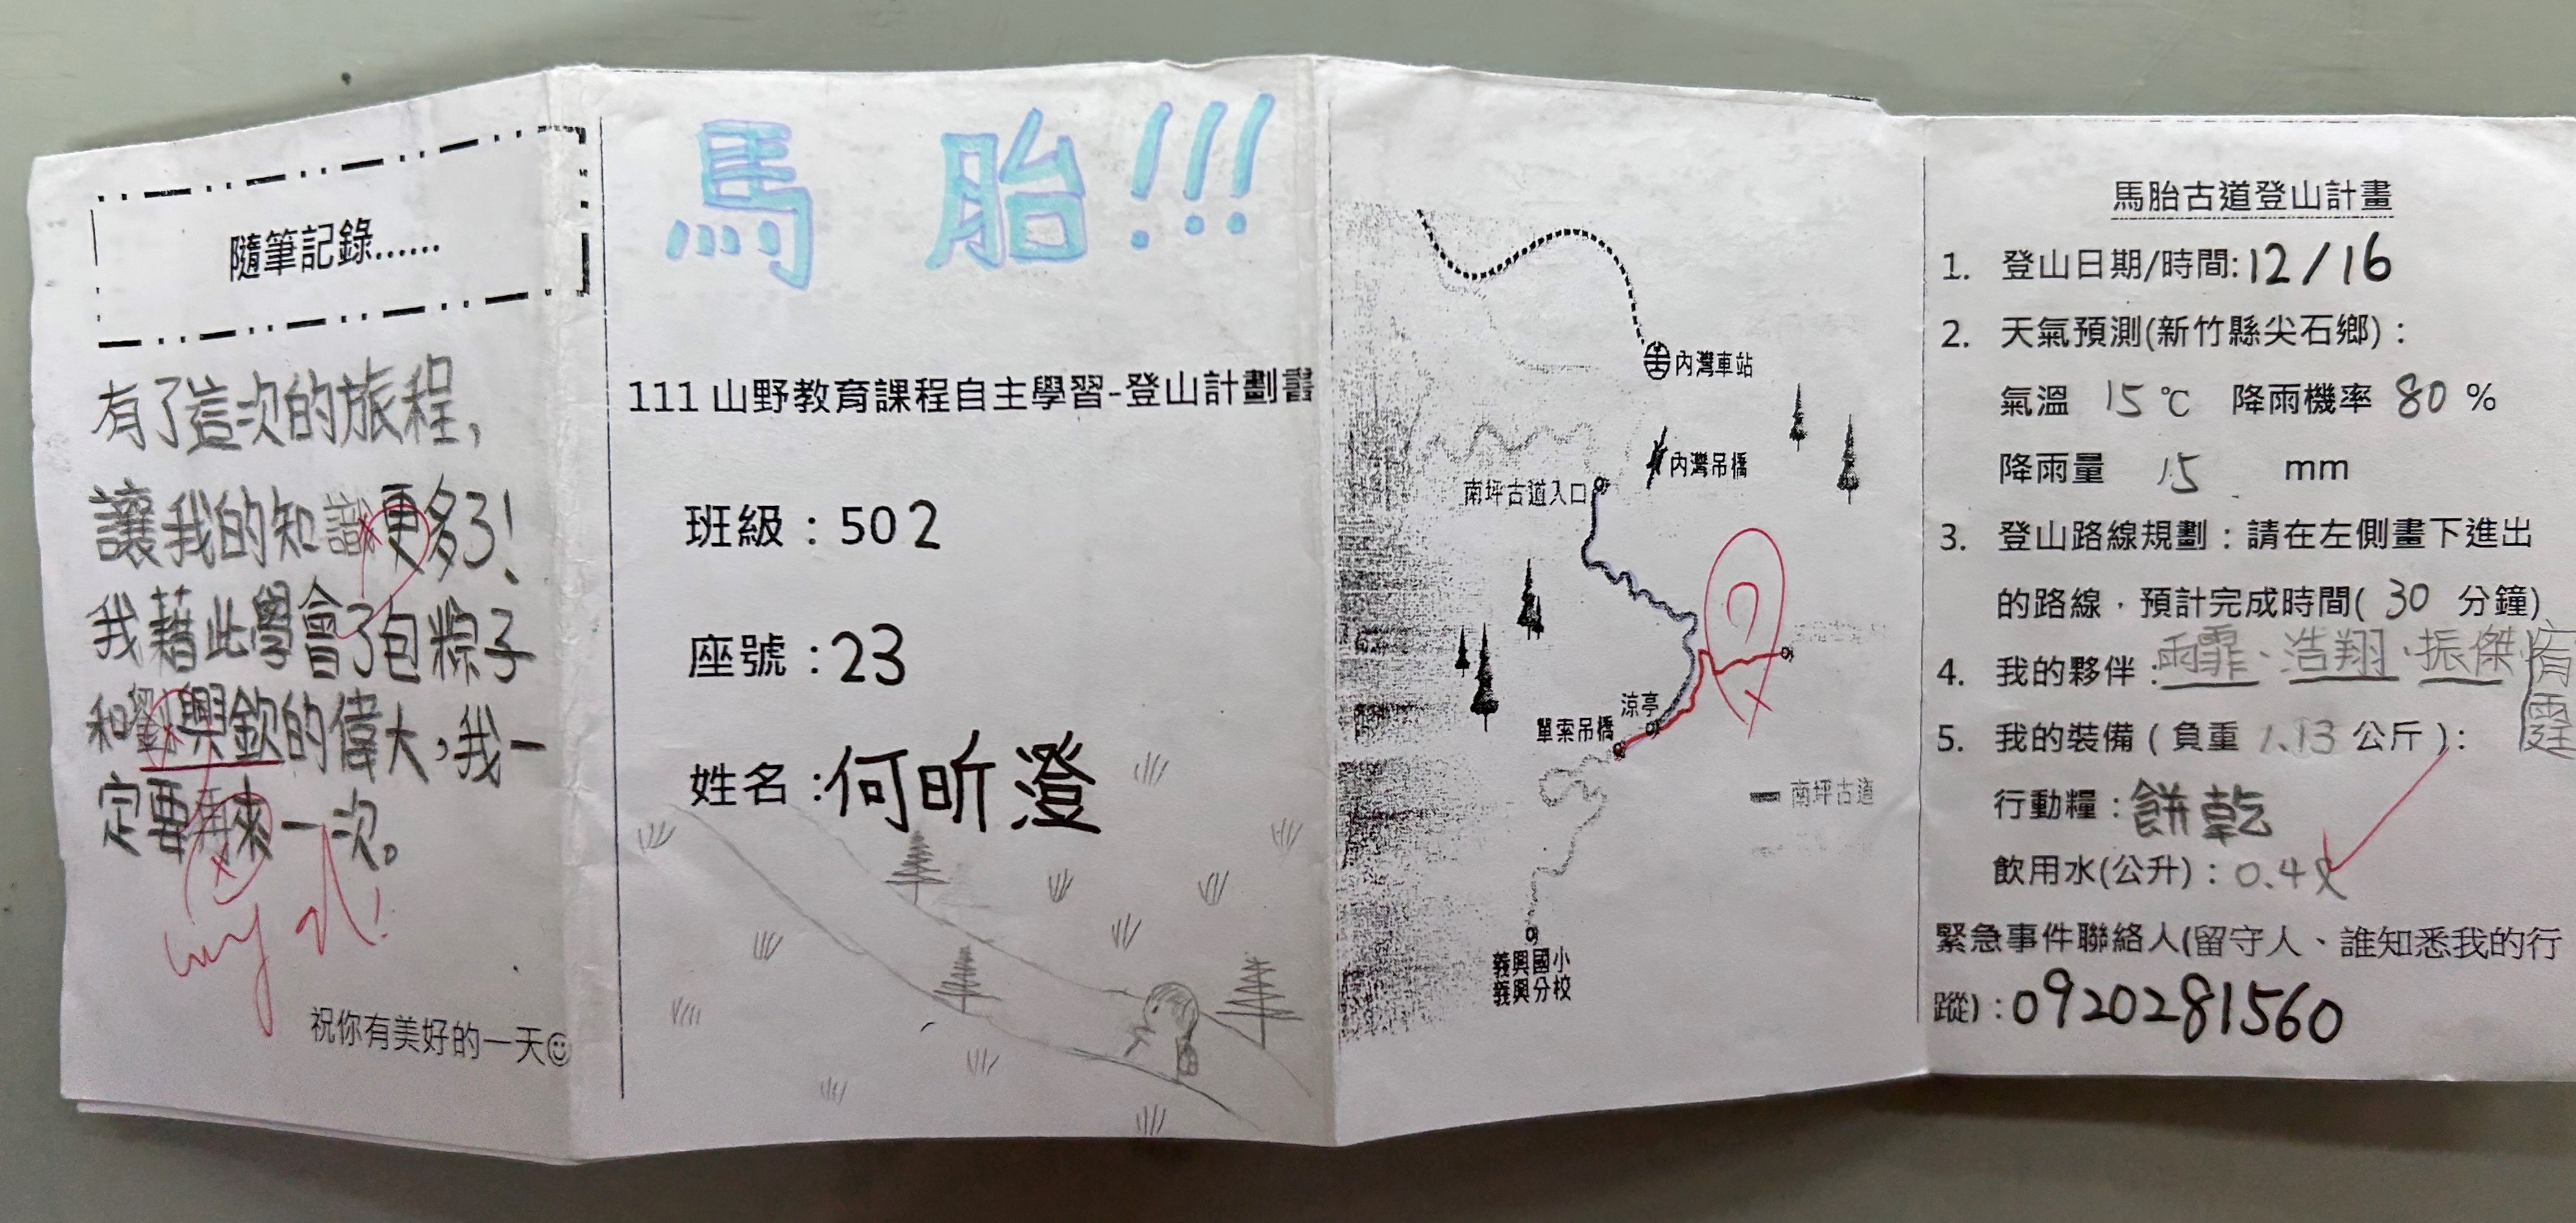 隨筆記錄......
有了這次的旅程，
讓我的知識更多了！
我藉此學會了包粽子
和劉興欽的偉大，我一
定要再來一次。
祝你有美好的一天☺
馬胎!!!
111 山野教育課程自主學習-登山計劃書
班級：502
座號：23
姓名：何昕澄
內灣車站
內灣吊橋
南坪古道入口
涼亭
單索吊橋
南坪古道
義興國小
義興分校
馬胎古道登山計畫
1. 登山日期/時間:12/16
2. 天氣預測(新竹縣尖石鄉)：
氣溫 15 ℃ 降雨機率 80 %
降雨量 15 mm
3. 登山路線規劃：請在左側畫下進出
的路線，預計完成時間( 30 分鐘)
4. 我的夥伴：雨霏、浩翔、振傑、宥霆
5. 我的裝備（負重 1.13 公斤）：
行動糧：餅乾
飲用水(公升)：0.4ℓ
緊急事件聯絡人(留守人、誰知悉我的行
蹤)：0920281560